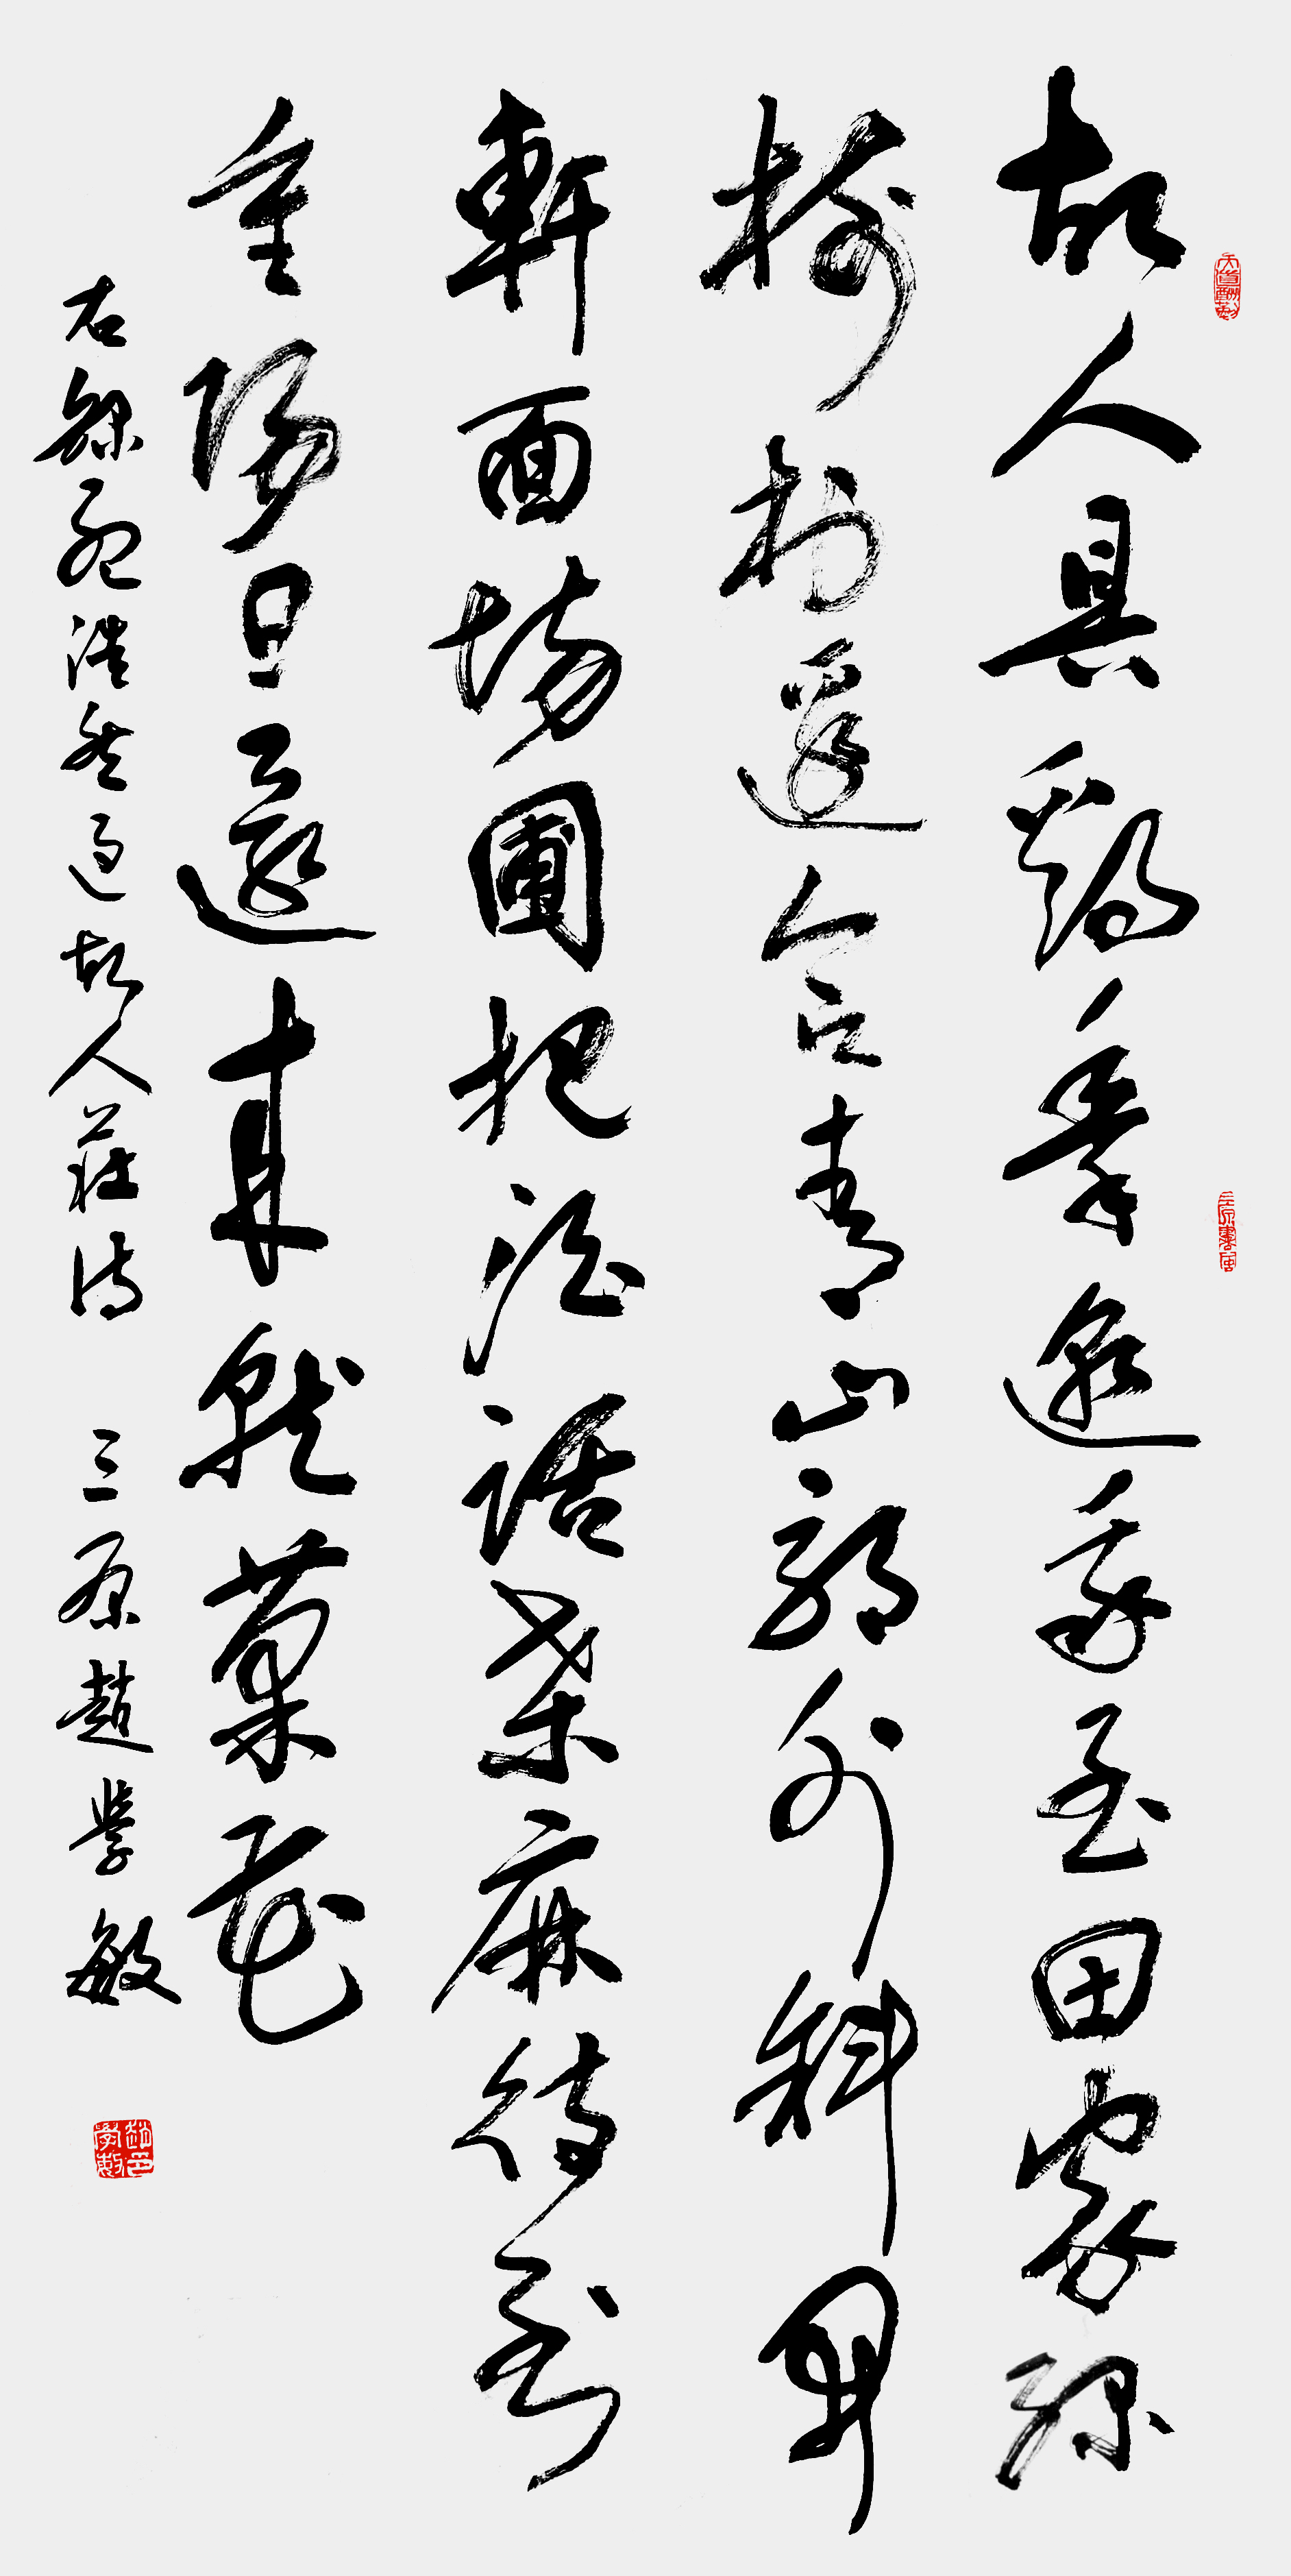 故人具雞黍邀我至田家綠
樹村邊合青山郭外斜開
軒面場圃把酒話桑麻待到
重陽日還來就菊花
右錄孟浩然過故人莊詩 三原趙學敏
天道酬勤
趙印學敏